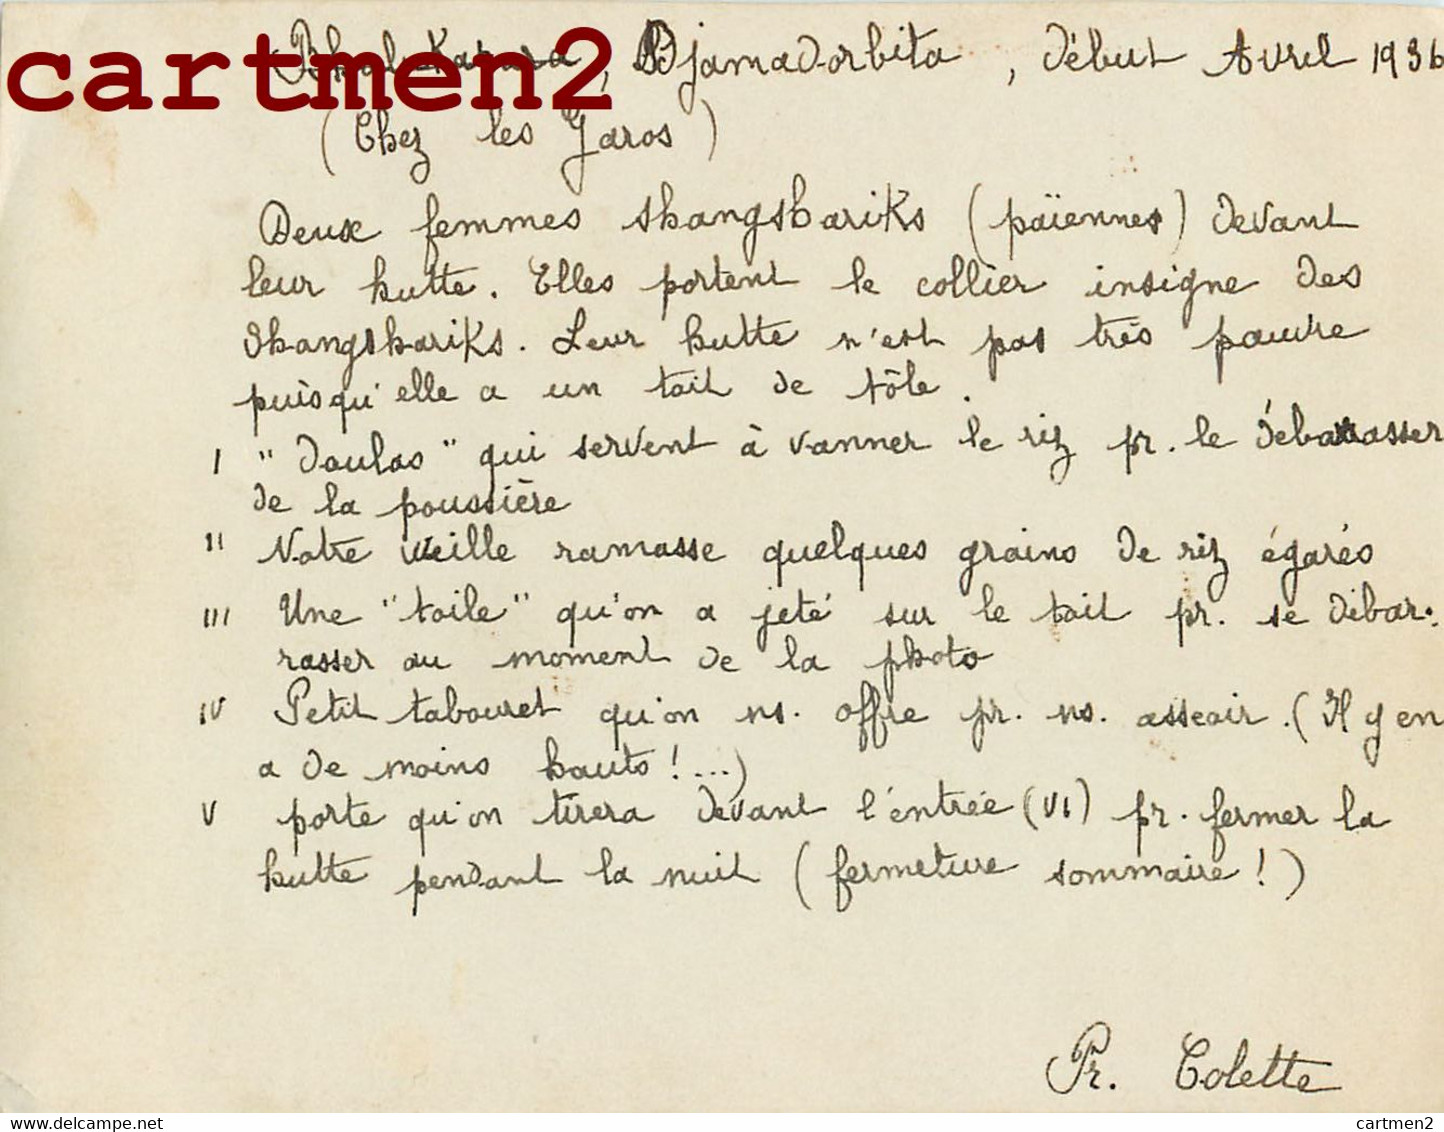 cartmen2
, Bjamadorbita, début Avril 1936
(Chez les Garos)
Deux femmes shangshariks (païennes) devant
leur hutte. Elles portent le collier insigne des
Shangshariks. Leur hutte n'est pas très pauvre
puisqu'elle a un toit de tôle.
I "doulas" qui servent à vanner le riz pr. le débarrasser
de la poussière
II Notre vieille ramasse quelques grains de riz égarés
III Une "toile" qu'on a jeté sur le toit pr. se débar-
rasser au moment de la photo
IV Petit tabouret qu'on ns. offre pr. ns. asseoir. (Il y en
a de moins hauts !...)
V porte qu'on tirera devant l'entrée (VI) pr. fermer la
hutte pendant la nuit (fermeture sommaire !)
Pr. Colette
delcampe.net
cartmen2